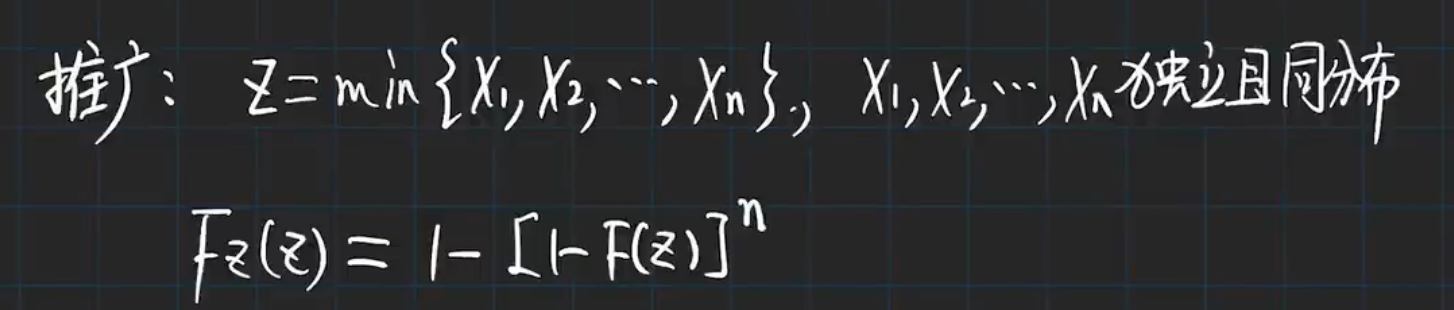 推广: Z=min{X₁,X₂,⋯,Xₙ}., X₁,X₂,⋯,Xₙ独立且同分布
F_Z(z) = 1-[1-F(z)]ⁿ